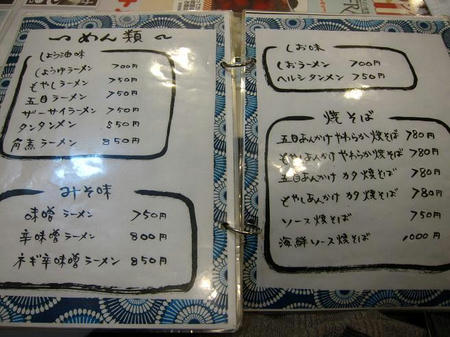 ～めん類～
しょう油味
しょうゆラーメン 700円
もやしラーメン 750
五目ラーメン 750
ザーサイラーメン 750
タンタンメン 850円
角煮ラーメン 850円
みそ味
味噌ラーメン 750
辛味噌ラーメン 800
ネギ辛味噌ラーメン 850
しお味
しおラーメン 700円
ヘルシタンメン 750円
焼そば
五目あんかけ やわらか焼そば 780円
もやしあんかけ やわらか焼そば 780
五目あんかけ カタ焼そば 780円
もやしあんかけ カタ焼そば 780円
ソース焼そば 750円
海鮮ソース焼そば 1000円